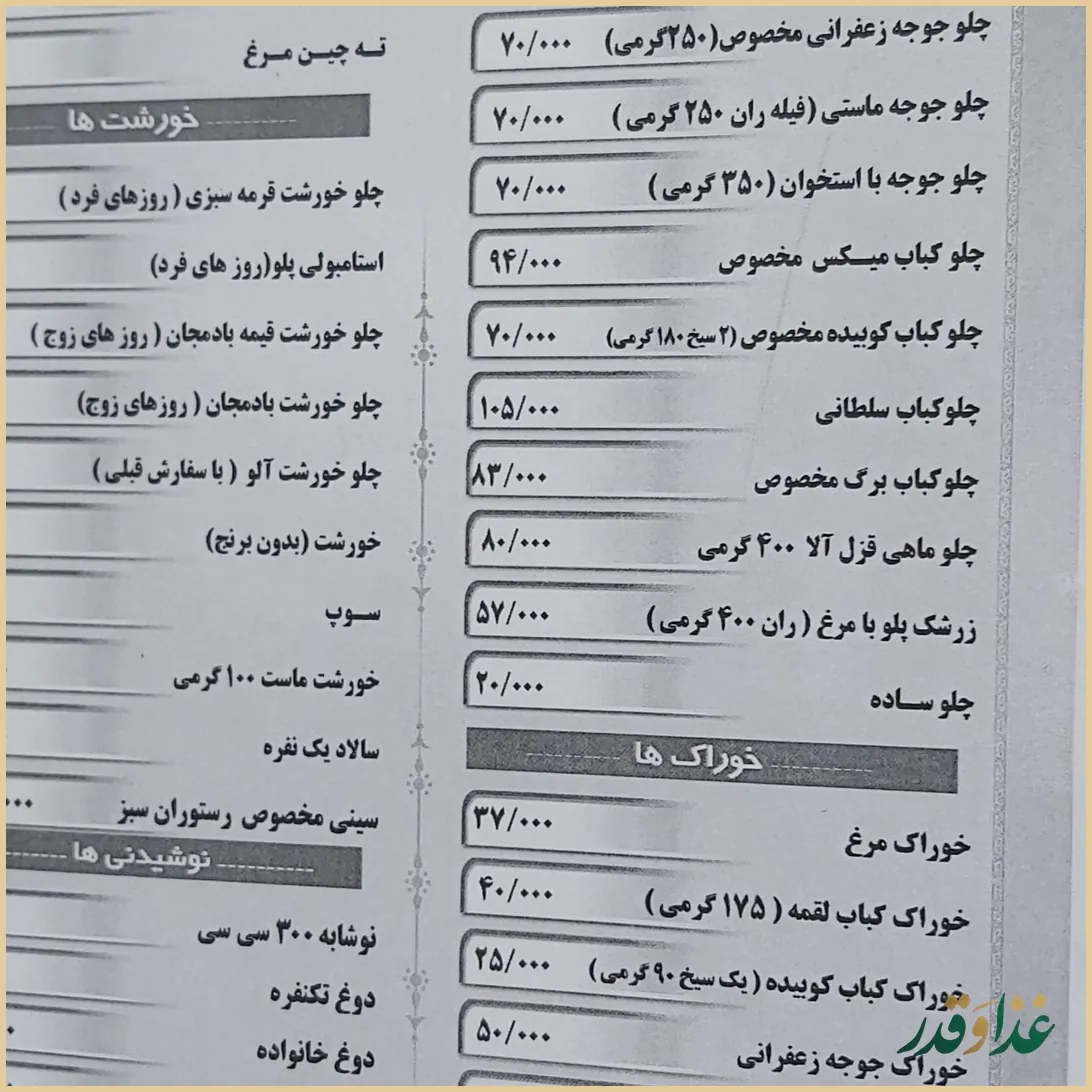 چلو جوجه زعفرانی مخصوص(۲۵۰گرمی) ۷۰/۰۰۰
چلو جوجه ماستی (فیله ران ۲۵۰ گرمی) ۷۰/۰۰۰
چلو جوجه با استخوان (۳۵۰ گرمی) ۷۰/۰۰۰
چلو کباب میـکس مخصوص ۹۴/۰۰۰
چلو کباب کوبیده مخصوص (۲ سیخ ۱۸۰ گرمی) ۷۰/۰۰۰
چلوکباب سلطانی ۱۰۵/۰۰۰
چلوکباب برگ مخصوص ۸۳/۰۰۰
چلو ماهی قزل آلا ۴۰۰ گرمی ۸۰/۰۰۰
زرشک پلو با مرغ ( ران ۴۰۰ گرمی) ۵۷/۰۰۰
چلو ســاده ۲۰/۰۰۰
خوراک ها
خوراک مرغ ۳۷/۰۰۰
خوراک کباب لقمه ( ۱۷۵ گرمی) ۴۰/۰۰۰
خوراک کباب کوبیده ( یک سیخ ۹۰ گرمی) ۲۵/۰۰۰
خوراک جوجه زعفرانی ۵۰/۰۰۰
تـه چیـن مـرغ
خورشت ها
چلو خورشت قرمه سبزی ( روزهای فرد )
استامبولی پلو(روز های فرد)
چلو خورشت قیمه بادمجان ( روز های زوج )
چلو خورشت بادمجان ( روزهای زوج)
چلو خورشت آلو ( با سفارش قبلی )
خورشت (بدون برنج)
سـوپ
خورشت ماست ۱۰۰ گرمی
سالاد یک نفره
سینی مخصوص رستوران سبز
نوشیدنی ها
نوشابه ۳۰۰ سی سی
دوغ تکنفره
دوغ خانواده
غذا و قدر